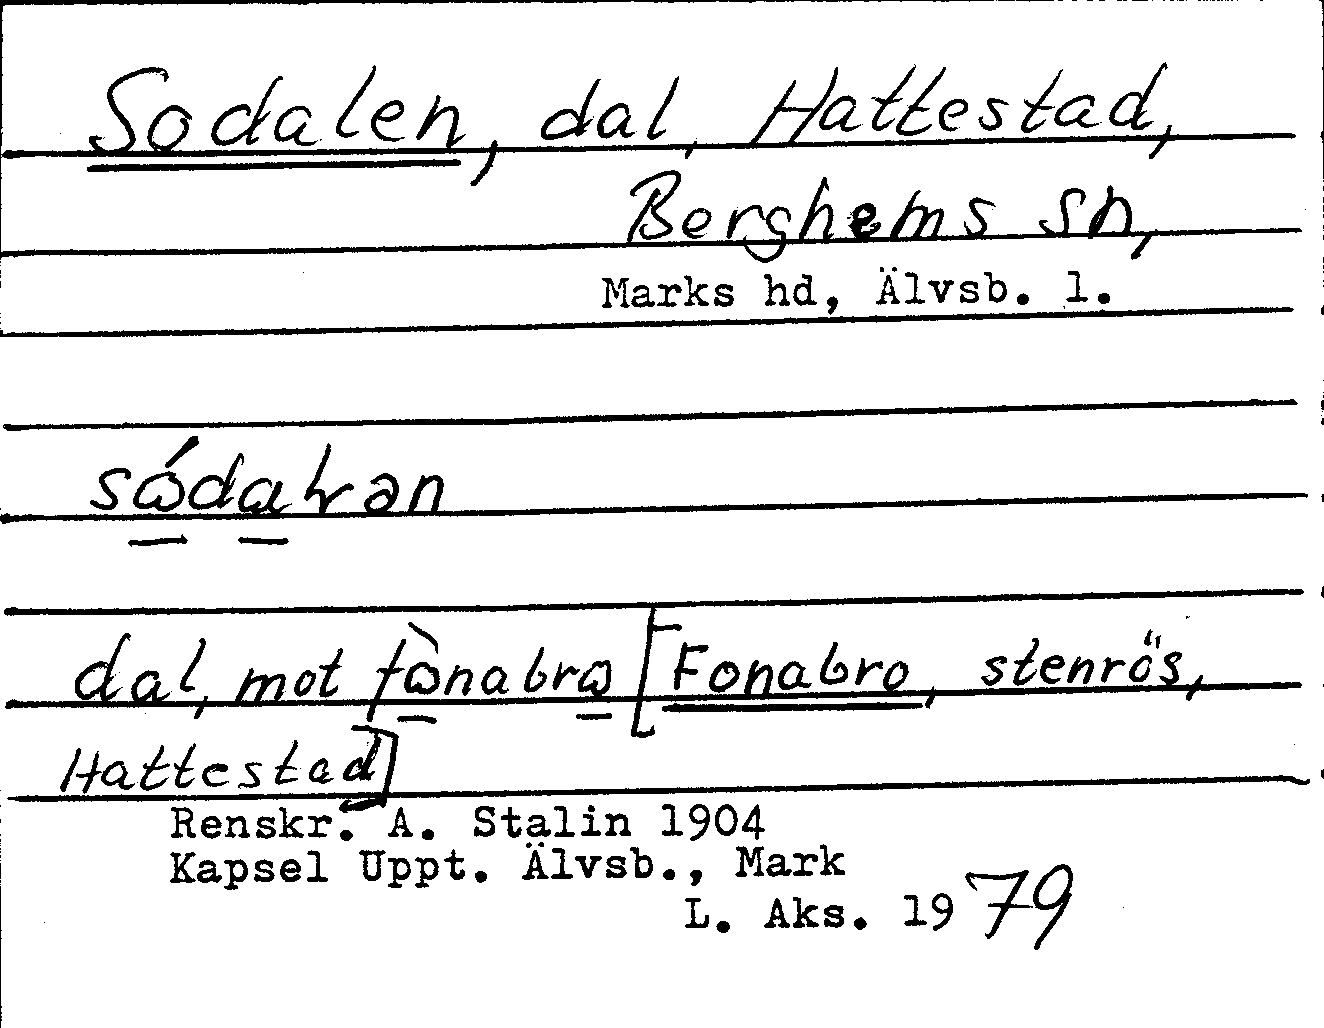 Sodalen, dal, Hattestad,
Berghems sn,
Marks hd, Älvsb. l.
dal, mot [Fonabro, stenrös,
Hattestad]
Renskr. A. Stalin 1904
Kapsel Uppt. Älvsb., Mark
L. Aks. 1979